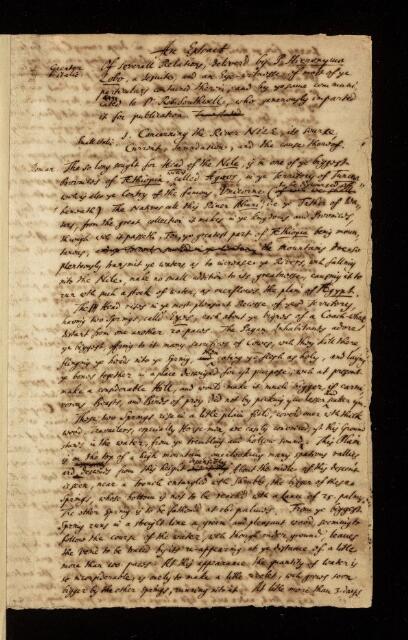 An Extract
Of severall Relations, delivered by P. Hieronymus
Lobo, a Jesuite, and an Eye-witnesse of most of ye
particulars contained therein, and by ye same communi-
cated to Sr Rob. Southwell, who generously imparted
it for publication.
1. Concerning the River Nile, its source,
Current, Inundation, and the cause thereof.
The so long sought for Head of the Nile, is in one of ye biggest
Provinces of Æthiopia called Agaos, in ye territory of
was also ye Contry of the famous Unicorne
beneath) The Natives
ters, from the great collection it makes in ye
through wch it passeth. For ye greatest part of Æthiopia being moun-
tanous, the mountains
plenteously transmit ye waters as to increase ye Rivers, wch falling
into the Nile, make so much addition to its greatnesse, causing it to
run with such a stock of water, as overflows the plain of Ægypt.
The Head rises in ye most pleasant Recesse of ye Territory,
having two Springs, called Eyes, each about ye bignes of a Coach-wheel
distant from one another 20 paces. The Pagan Inhabitants adore
ye biggest, offring to it many sacrifices of Cowes, wch they kill there,
flinging ye heads into ye spring, eating ye flesh as holy, and laying
ye bones together in a place designed for yt purpose, wch at present
make a considerable Hill, and would make it much bigger, if carni-
vorous Beasts, and Birds of prey did not by picking ym lessen
These two Springs rise in a little plain field, cover'd over with thick
wood. Travailers, especially Horse-men, are easily convinced yt this Ground
stands in the water, from ye trembling and hollow sound. This Plain
is on the top of a high mountain, overlooking many spacious vallies,
and descends from this height insensibly. About the midle of this descent
is seen, near a trench entangled with shrubs, the bigger of these 2
springs, whose bottom is not to be reached with a Lance of 25 palms,
The other spring is to be fathomed at 16 palms. From ye biggest
spring runs in a straight line a green and pleasant wood, seeming to
follow the course of the water, wch though under ground, leaves
the vein to be traced by its re-appearing at ye distance of a little
more than 100 paces. At this appearance the quantity of water is
so inconsiderable, as only to make a little rivulet, wch grows soon
bigger by the other springs, running into it. At little more than 3 days